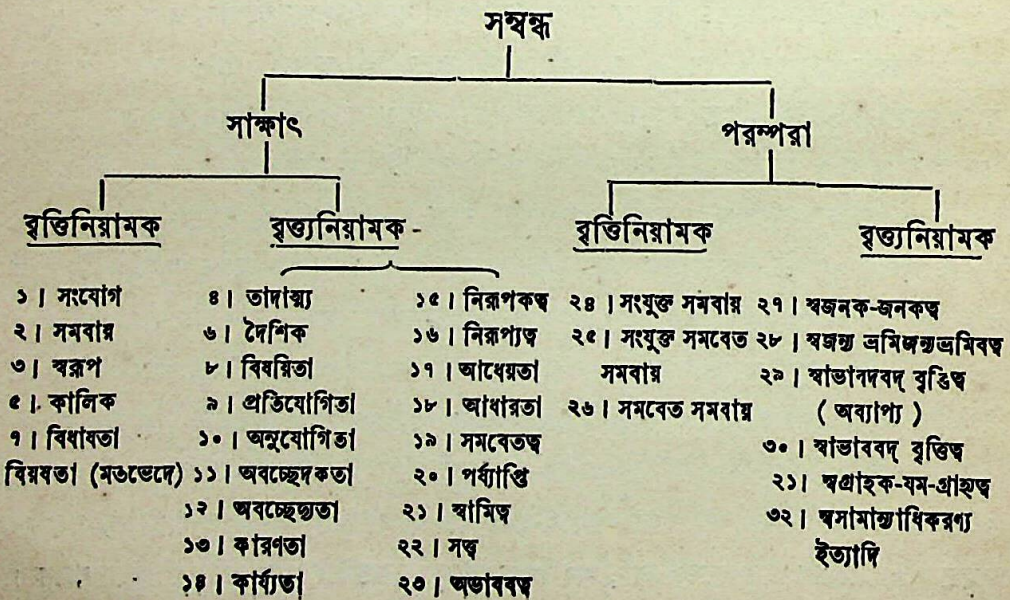 সম্বন্ধ
সাক্ষাৎ
পরম্পরা
বৃত্তিনিয়ামক
১। সংযোগ
২। সমবায়
৩। স্বরূপ
৫। কালিক
৭। বিধায়তা
বিয়ষতা (মতভেদে)
বৃত্ত্যনিয়ামক -
৪। তাদাত্ম্য
৬। দৈশিক
৮। বিষয়িতা
৯। প্রতিযোগিতা
১০। অনুযোগিতা
১১। অবচ্ছেদকতা
১২। অবচ্ছেদ্যতা
১৩। কারণতা
১৪। কার্য্যতা
১৫। নিরূপকত্ব
১৬। নিরূপ্যত্ব
১৭। আধেয়তা
১৮। আধারতা
১৯। সমবেতত্ব
২০। পর্য্যাপ্তি
২১। স্বামিত্ব
২২। সত্ত্ব
২৩। অভাববত্ব
বৃত্তিনিয়ামক
২৪। সংযুক্ত সমবায়
২৫। সংযুক্ত সমবেত
সমবায়
২৬। সমবেত সমবায়
বৃত্ত্যনিয়ামক
২৭। স্বজনক-জনকত্ব
২৮। স্বজন্য ভ্রমিজন্যভ্রমিবত্ব
২৯। স্বাভাবদবদ্ বৃত্তিত্ব
( অব্যাপ্য )
৩০। স্বাভাববদ্ বৃত্তিত্ব
২১। স্বগ্রাহক-যম-গ্রাহ্যত্ব
৩২। স্বসামান্যাধিকরণ্য
ইত্যাদি